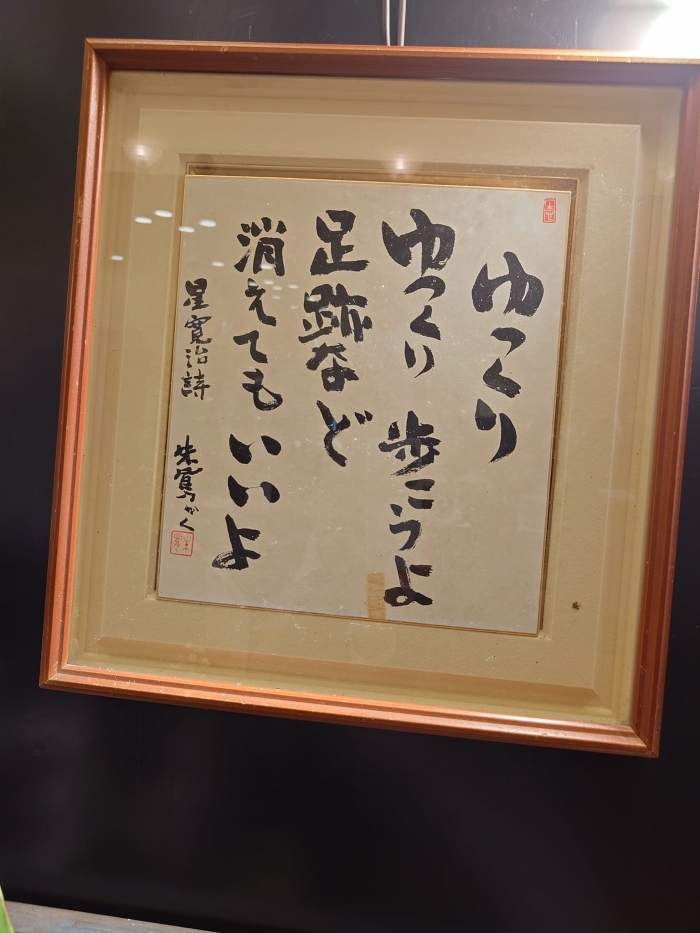 ゆっくり
ゆっくり 歩こうよ
足跡など
消えてもいいよ
星寛治詩
朱鷺かく